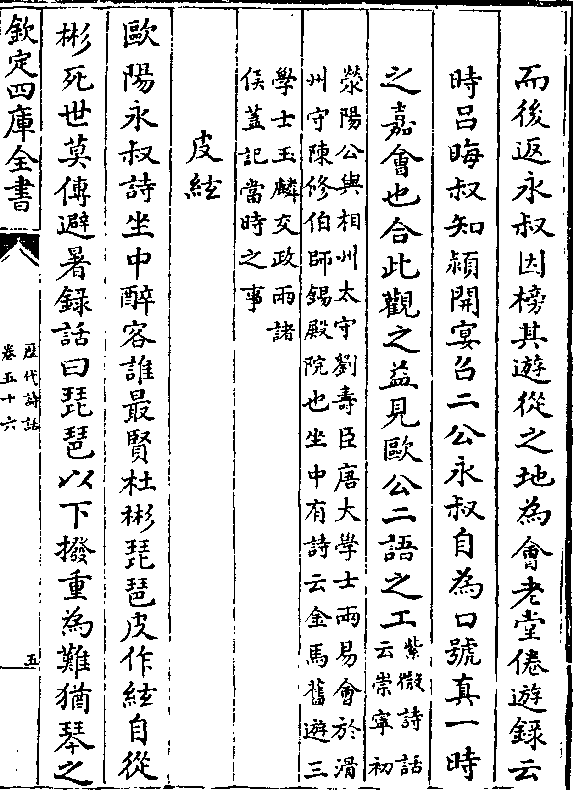 而後返永叔因榜其遊從之地為會老堂倦遊録云
時吕晦叔知潁開宴召二公永叔自為口號真一時
之嘉會也合此觀之益見歐公二語之工紫微詩話
云崇寧初
滎陽公與相州太守劉壽臣唐大學士兩易會於滑
州守陳修伯師錫殿院也坐中有詩云金馬舊遊三
學士玉麟交政兩諸
侯蓋記當時之事
皮絃
歐陽永叔詩坐中醉客誰最賢杜彬琵琶皮作絃自從
彬死世莫傳避暑録話曰琵琶以下撥重為難猶琴之
欽定四庫全書
歷代詩話
卷五十六
五